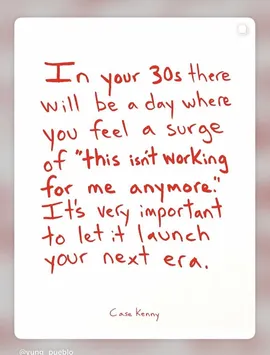 In your 30s there
will be a day where
you feel a surge
of "this isn't working
for me anymore."
It's very important
to let it launch
your next era.
Case Kenny
@yung_pueblo